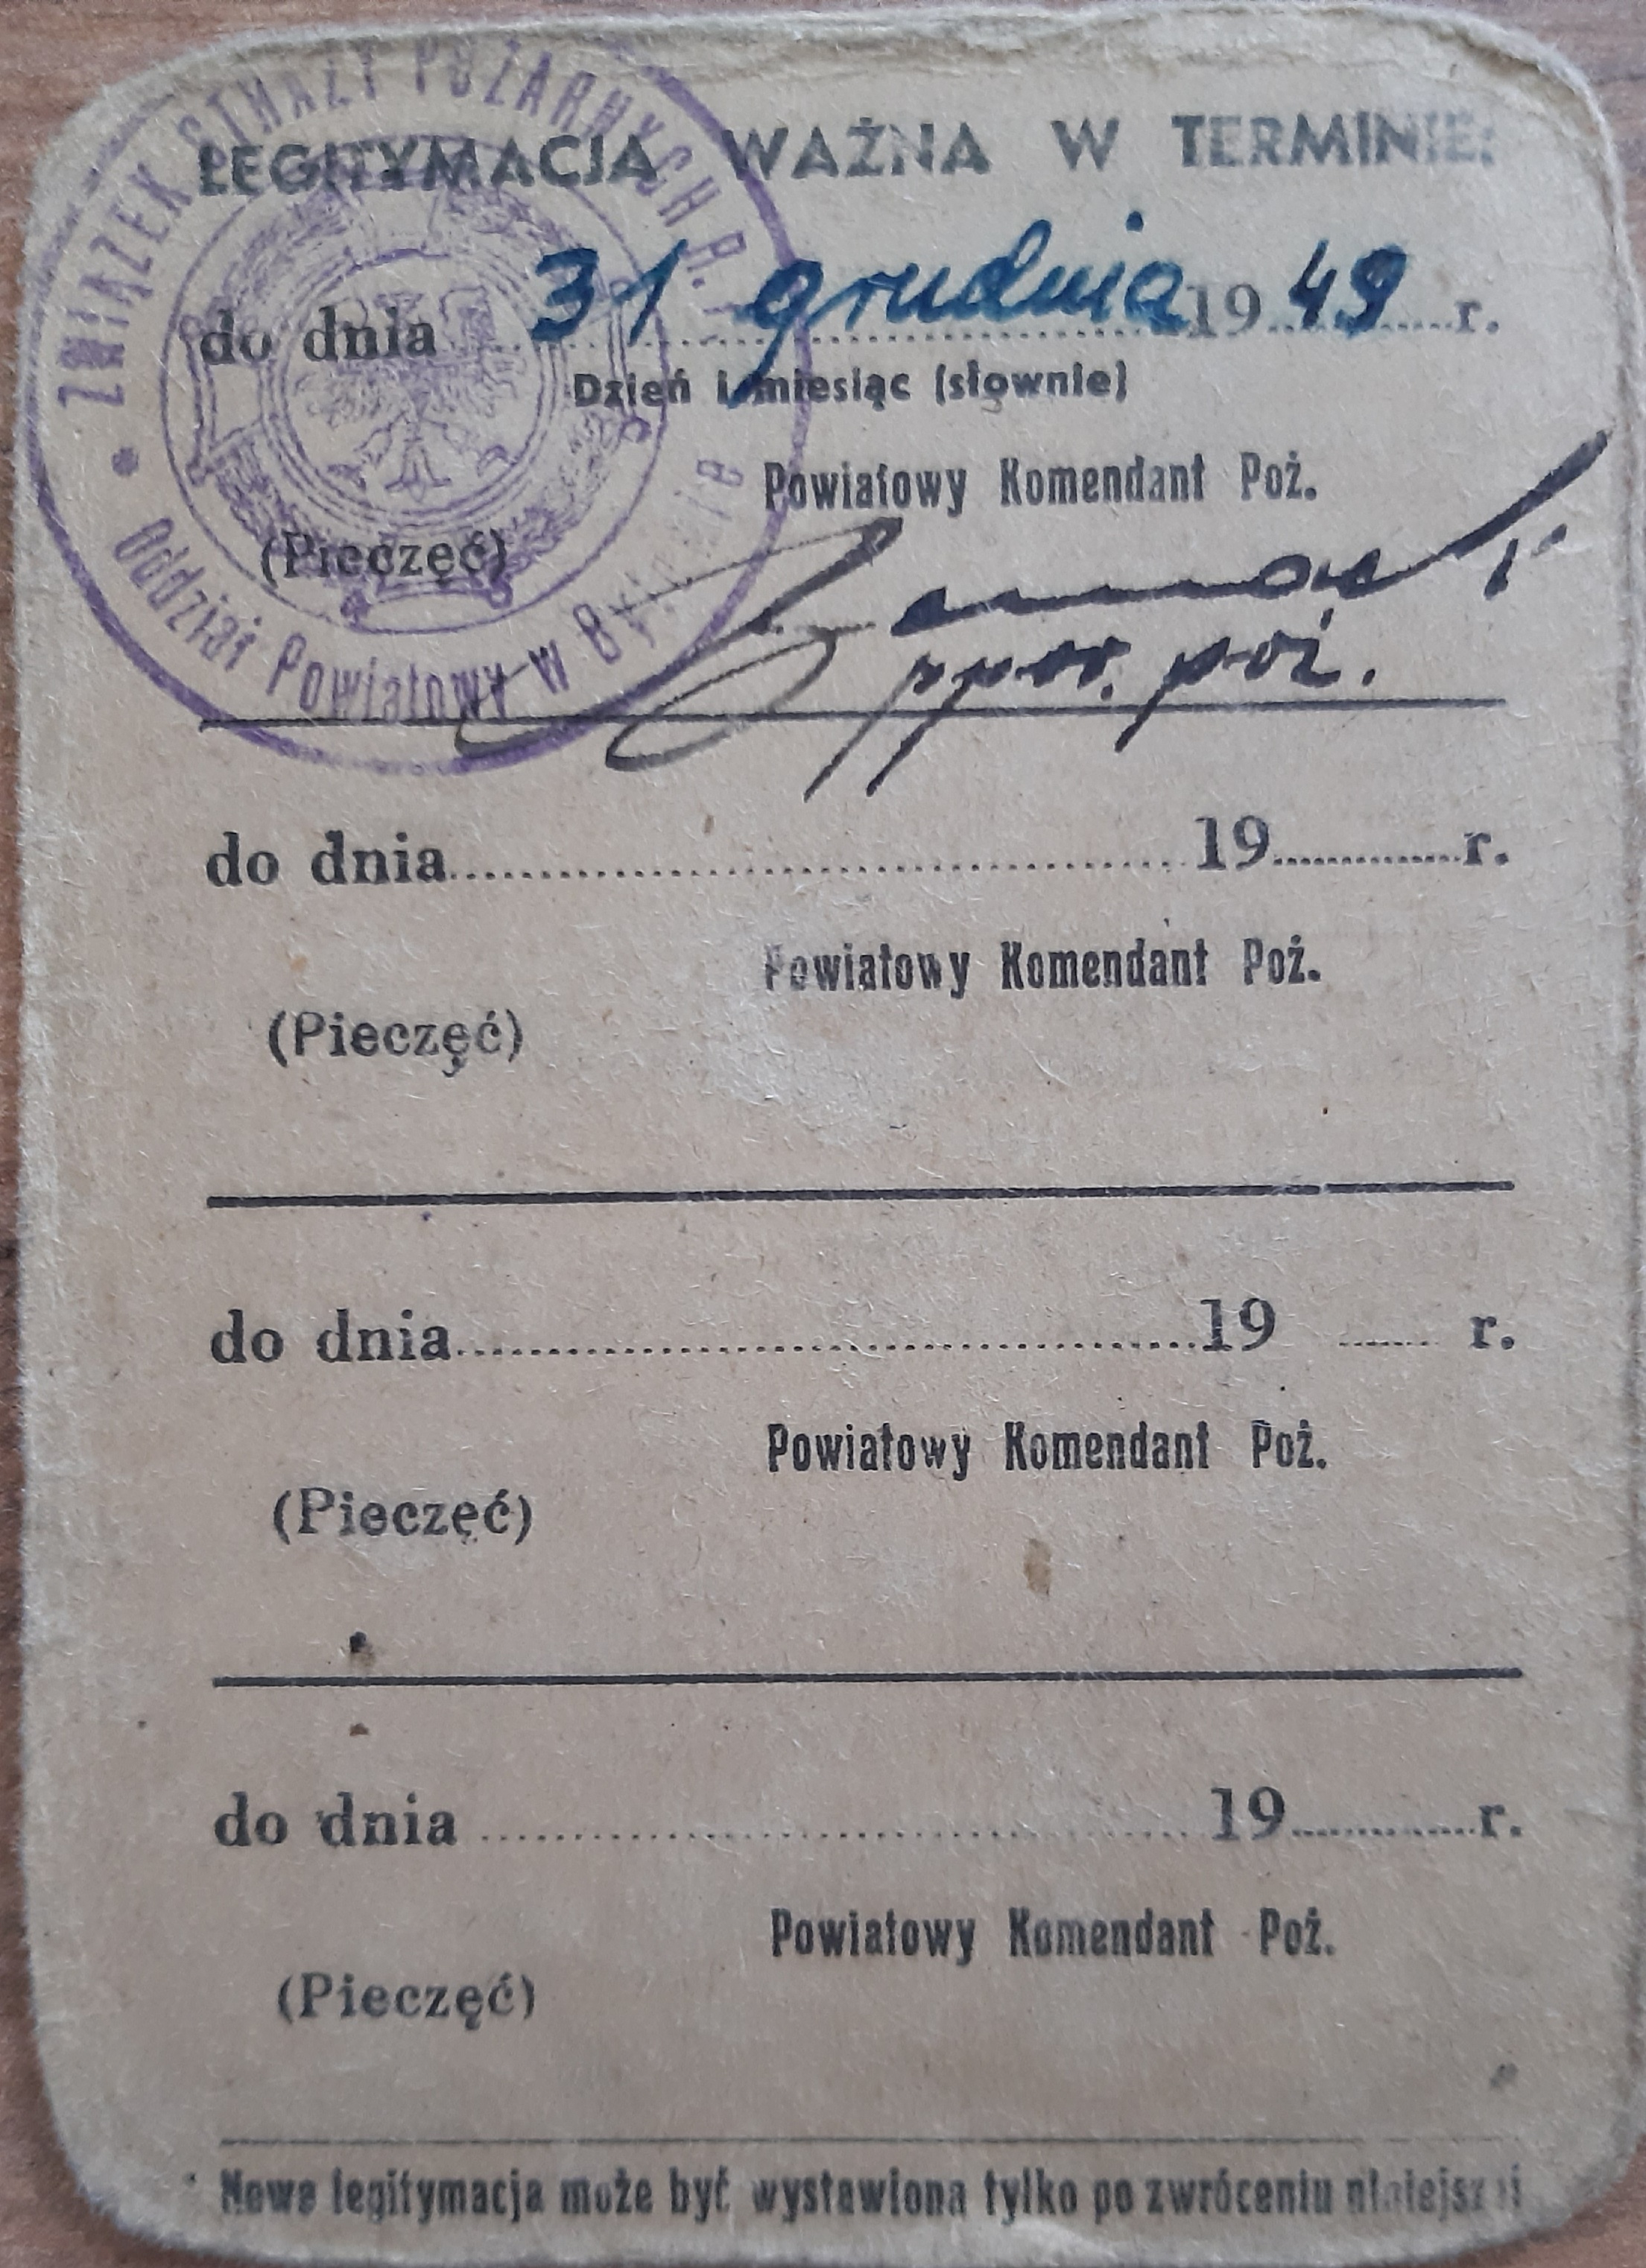 ZWIĄZEK STRAŻY POŻARNYCH R.
Oddział Powiatowy w
LEGITYMACJA WAŻNA W TERMINIE:
do dnia 31 grudnia 19 49 r.
Dzień i miesiąc (słownie)
Powiatowy Komendant Poż.
(Pieczęć)
ppor. poż.
do dnia 19 r.
Powiatowy Komendant Poż.
(Pieczęć)
do dnia 19 r.
Powiatowy Komendant Poż.
(Pieczęć)
do dnia 19 r.
Powiatowy Komendant Poż.
(Pieczęć)
Nowa legitymacja może być wystawiona tylko po zwróceniu niniejszej